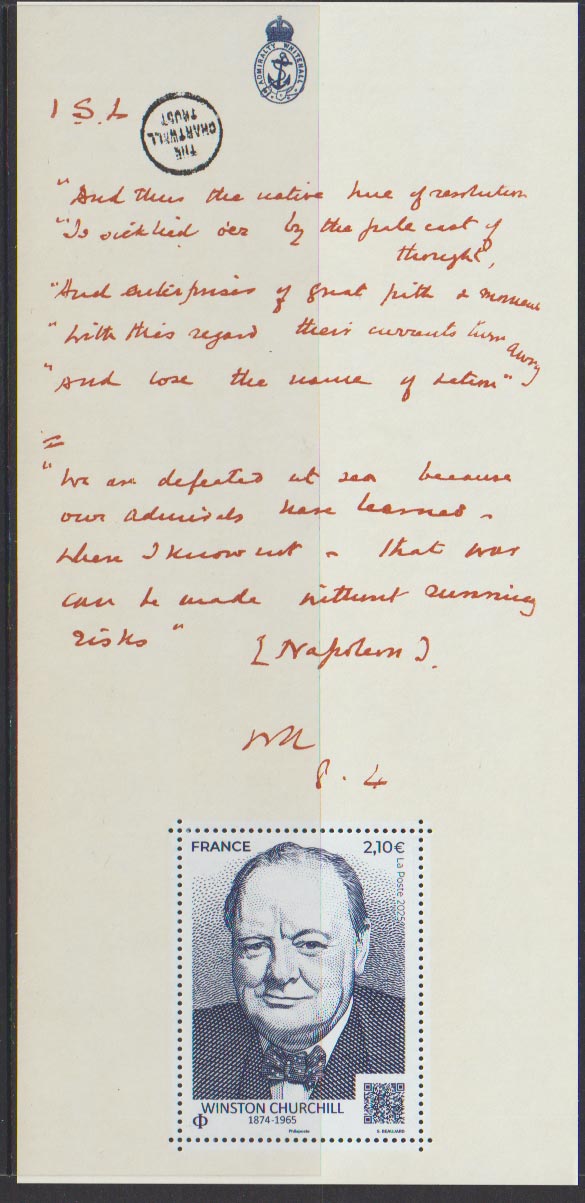 ADMIRALTY WHITEHALL
1 S.L
THE CHARTWELL TRUST
"And thus the native hue of resolution
"Is sicklied o'er by the pale cast of
thought,
"And enterprises of great pith & moment
"With this regard their currents turn awry
"And lose the name of action"
"We are defeated at sea because
our admirals have learned -
where I know not - that war
can be made without running
risks"
[Napoleon].
8.4
FRANCE
2,10€
La Poste 2025
WINSTON CHURCHILL
1874-1965
Philaposte
S. BEAUJARD